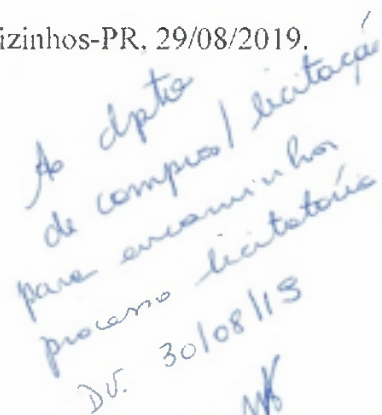 izinhos-PR, 29/08/2019.
Ao dpto
de compras/ licitação
para encaminhar
processo licitatório
DV. 30/08/19